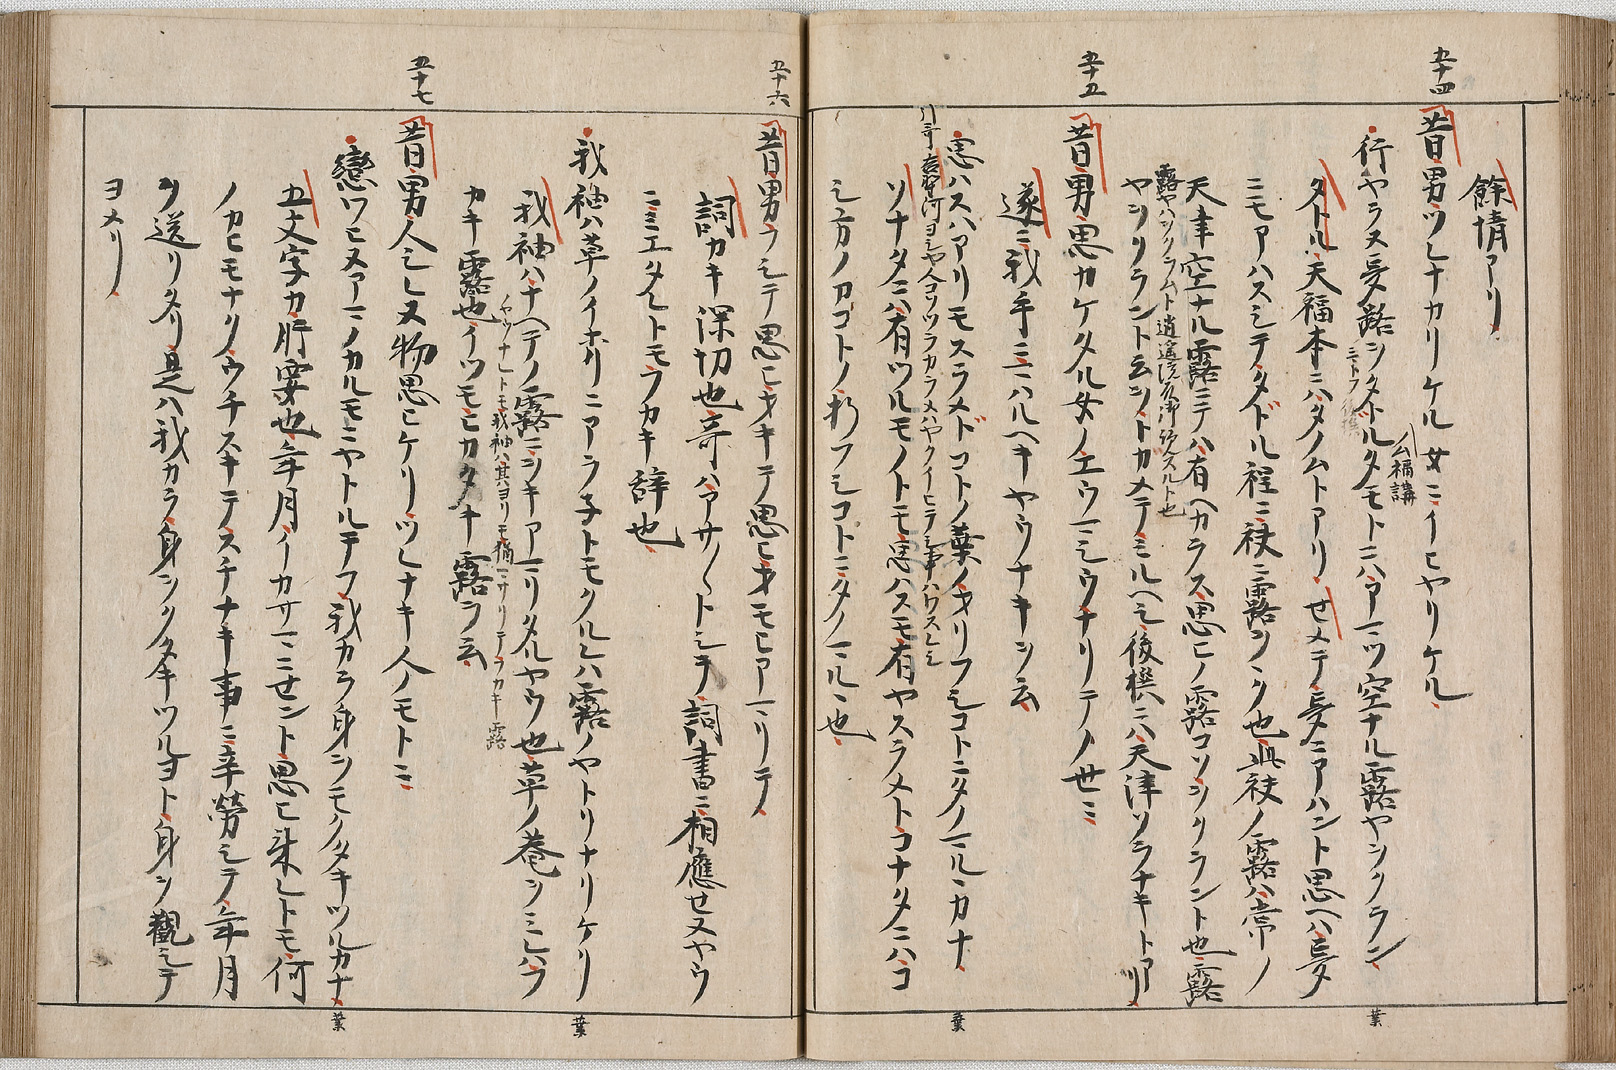 餘情アリ
五十四
昔男ツレナカリケル女ニイヒヤリケル
行ヤラヌ夢路ヲタトルタモトニハアマツ空ナル露ヤヲクラン
タトル天福本ニハタノムトアリせメテ夢ニアハント思ヘハ夢
ニモアハスシテタドル程ニ袂ニ露ヲヽク也此袂ノ露ハ常ノ
天津空ナル露ニテハ有ヘカラス思ヒノ露コソヲクラント也露
露ヤヲクラムト逍遥院殿御説スルト也
ヤヲクラント云ヲトカメテミルヘシ後撰ニハ天津ソラナキトアリ
五十五
昔男思カケタル女ノエウマシウナリテノ世ニ
遂ニ我手ニハイルヘキヤウナキヲ云
思ハスハアリモスラメドコトノ葉ノヲリフシコトニタノマルヽカナ
ソナタニハ有ツルモノトモ思ハスモ有ヤスラメトコナタニハコ
シ方ノカコトノ折フシコトニタノマルヽ也
五十六
昔男フシテ思ヒヲキテ思ヒヲモヒアマリテ
詞カキ深切也哥ハアサ〳〵トシテ詞書ニ相應せヌヤウ
ニミエタレトモフカキ辞也
我袖ハ草ノイホリニアラネトモクルレハ露ノヤトリナリケリ
我袖ハナヘテノ露ニシキアマリタルヤウ也草ノ菴ヲミレハフ
カキ露也イツモヒカタキ露ヲ云
五十七
昔男人シレヌ物思ヒケリツレナキ人ノモトニ
戀ワヒヌアマノカルモニヤトルテフ我カラ身ヲモクタキツルカナ
五文字カ肝要也年月イカサマニせント思ヒ來レトモ何
ノカヒモナクウチスキテスチナキ事ニ辛勞シテ年月
ヲ送リタリ是ハ我カラ身ヲクタキツルヨト身ヲ觀シテ
ヨメリ